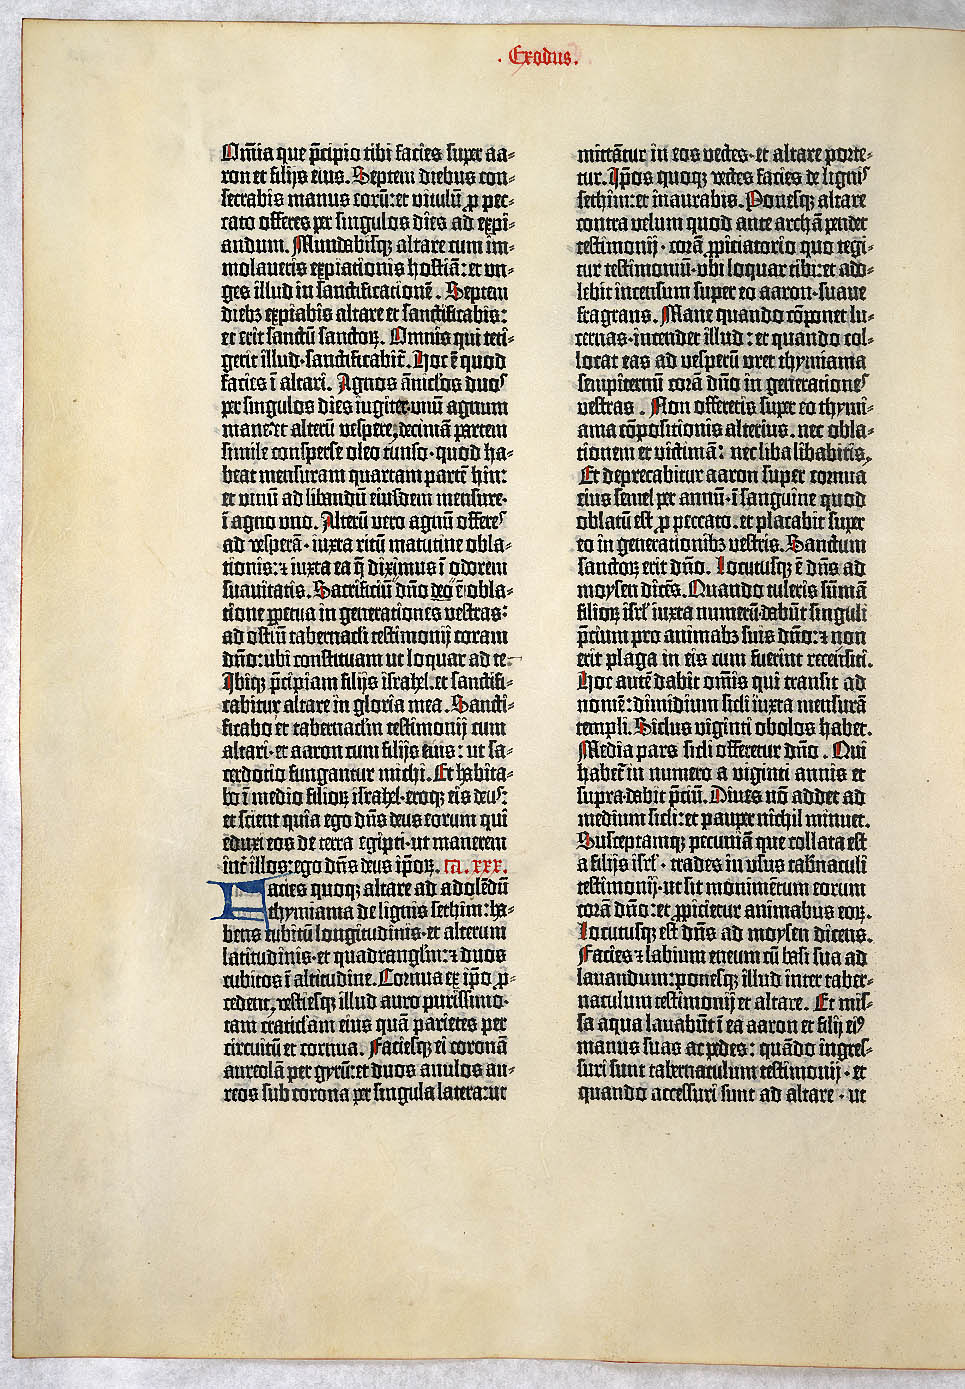 . Exodus.
Om̄ia que p̄cipio tibi facies super aa-
ron et filijs eius. Septem diebus con-
secrabis manus eorū: et vitulū ꝓ pec-
cato offeres per singulos dies ad expi-
andum. Mundabisqꝫ altare cum im-
molaueris expiationis hostiā: et vn-
ges illud in sanctificationē. Septem
diebꝫ expiabis altare et sanctificabis:
et erit sanctū sanctoꝝ. Omnis qui teti-
gerit illud· sanctificabit̄. Hoc ē quod
facies ī altari. Agnos āniclos duos
per singulos dies iugiter· vnū agnum
mane: et alterū vespere, decimā partem
simile consperse oleo tunso· quod ha-
beat mensuram quartam partē hin:
et vinū ad libandū eiusdem mensure·
ī agno vno. Alterū vero agnū offeres
ad vesperā· iuxta ritū matutine obla-
tionis: ⁊ iuxta ea q̄ diximus ī odorem
suauitatis. Sacrificiū dn̄o deo ē obla-
tione ꝑpetua in generationes vestras:
ad ostiū tabernacli testimonij coram
dn̄o: ubi constituam ut loquar ad te.
Ibiqꝫ p̄cipiam filijs israhel· et sanctifi-
cabitur altare in gloria mea. Sancti-
ficabo et tabernaclm̄ testimonij cum
altari· et aaron cum filijs suis: ut sa-
cerdotio fungantur michi. Et habita-
bo ī medio filioꝝ israhel· eroqꝫ eis deus:
et scient quia ego dn̄s deus eorum qui
eduxi eos de terra egipti· ut manerem
int̄ illos: ego dn̄s deus ip̄oꝝ. ca. xxx.
Facies quoqꝫ altare ad adolēdū
thymiama de lignis sethim: ha-
bens cubitū longitudinis· et alterum
latitudinis· et quadranglm̄: ⁊ duos
cubitos ī altitudine. Cornua ex ip̄o ꝓ-
cedent, vestiesqꝫ illud auro purissimo·
tam craticlam eius quā parietes per
circuitū et cornua. Faciesqꝫ ei coronā
aureolā per gyrū: et duos anulos au-
reos sub corona per singula latera: ut
mittātur in eos vectes· et altare porte-
tur. Ip̄os quoqꝫ vectes facies de lignis
sethim: et inaurabis. Ponesqꝫ altare
contra velum quod ante archā pendet
testimonij· corā ꝓpiciatorio quo tegi-
tur testimoniū· vbi loquar tibi: et ado-
lebit incensum super eo aaron· suaue
fragrans. Mane quando cōponet lu-
cernas· incendet illud: et quando col-
locat eas ad vesperū vret thymiama
sempiternū corā dn̄o in generationes
vestras. Non offeretis super eo thymi-
ama cōpositionis alterius. nec obla-
tionem et victimā: nec liba libabitis.
Et deprecabitur aaron super cornua
eius semel per annū· ī sanguine quod
oblatū est ꝓ peccato. et placabit super
eo in generationibꝫ vestris. Sanctum
sanctoꝝ erit dn̄o. Locutusqꝫ ē dn̄s ad
moysen dicēs. Quando tuleris sūmā
filioꝝ isrl̄ iuxta numerū· dabūt singuli
p̄cium pro animabꝫ suis dn̄o: ⁊ non
erit plaga in eis cum fuerint recensiti.
Hoc autē dabit om̄is qui transit ad
nomē: dimidium sicli iuxta mensurā
templi. Siclus viginti obolos habet.
Media pars sicli offeretur dn̄o. Qui
habet̄ in numero a viginti annis et
supra· dabit p̄ciū. Diues nō addet ad
medium sicli: et pauper nichil minuet.
Susceptamqꝫ pecuniā que collata est
a filijs isrl̄· trades in vsus tab̄naculi
testimonij· ut sit monimētum eorum
corā dn̄o: et ꝓpicietur animabus eoꝝ.
Locutusqꝫ est dn̄s ad moysen dicens.
Facies ⁊ labium eneum cū basi sua ad
lauandum: ponesqꝫ illud inter taber-
naculum testimonij et altare. Et mis-
sa aqua lauabūt ī ea aaron et filij eiꝰ
manus suas ac pedes: quādo ingres-
suri sunt tabernaculum testimonij· et
quando accessuri sunt ad altare· ut